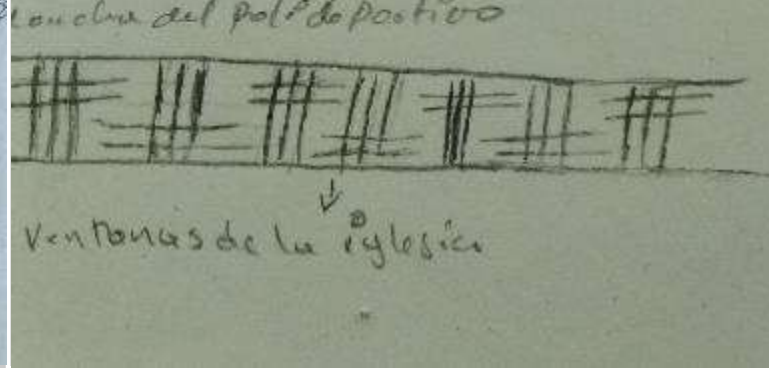 cancha del polideportivo
ventanas de la iglesia